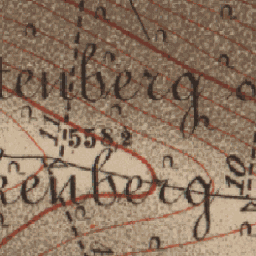 tenberg
558,2
kenberg
10